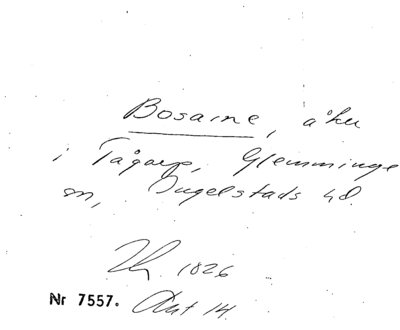 Bosarne, åker
i Tågarp, Glemminge
sn, Ingelstads hd.
Lh. 1826
Nr 7557. Akt 14